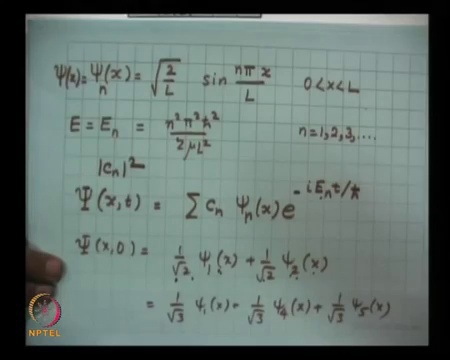 Ψ(x) = Ψₙ(x) = √(2/L) sin nπx/L 0<x<L
E = Eₙ = n²π²ħ²/2μL² n=1,2,3,....
|cₙ|²
Ψ(x,t) = Σ cₙ Ψₙ(x) e^(-iEₙt/ħ)
Ψ(x,0) = 1/√2 Ψ₁(x) + 1/√2 Ψ₂(x)
= 1/√3 Ψ₁(x) + 1/√3 Ψ₄(x) + 1/√3 Ψ₅(x)
NPTEL